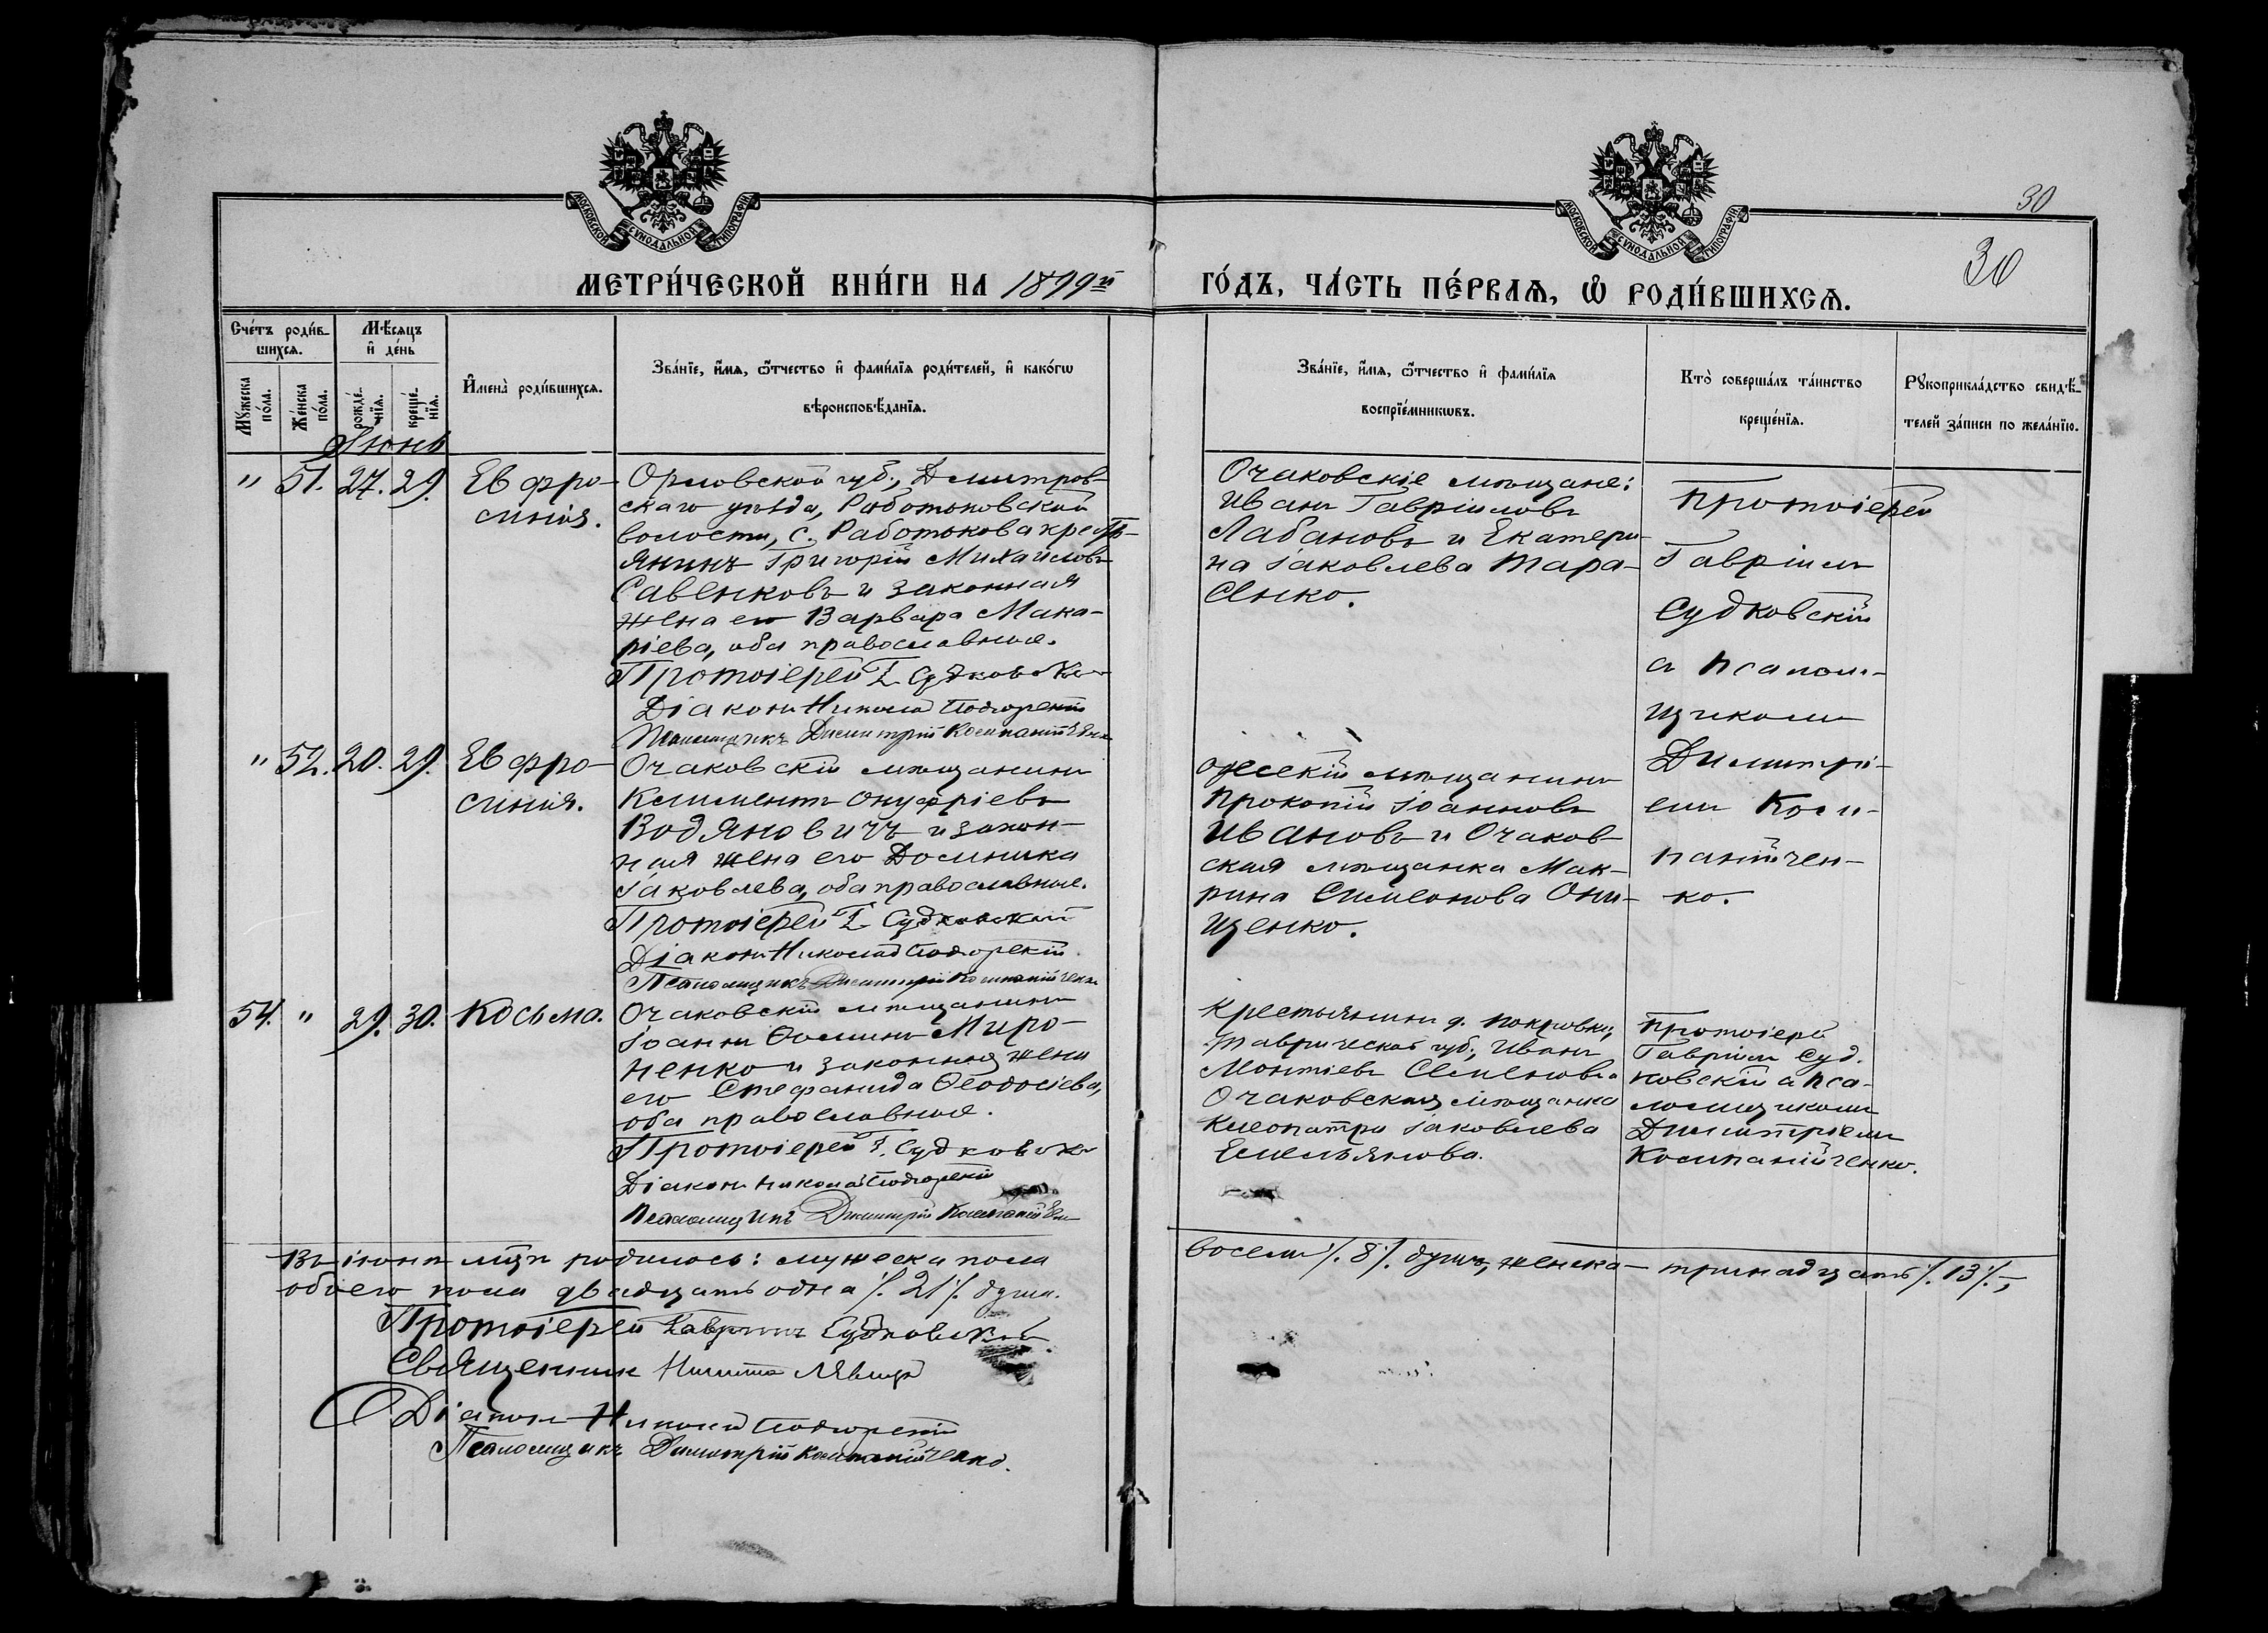 МОСКОВСКОЙ СѴНОДАЛЬНОЙ ТИПОГРАФІИ
МОСКОВСКОЙ СѴНОДАЛЬНОЙ ТИПОГРАФІИ
30
30
МЕТРИ́ЧЕСКОЙ КНИ́ГИ НА 1899й
ГО́ДЪ, ЧА́СТЬ ПЕ́РВАЯ, Ѡ РОДИ́ВШИХСЯ.
Сче́тъ роди́в-
шихся.
Мѣ́сяцъ
и де́нь
Мꙋ́жеска
по́ла.
Же́нска
по́ла.
рожде́-
нїя.
креще́-
нїя.
Имена̀ роди́вшихся.
Зва́нїе, и́мя, ѻ́тчество и фами́лїя роди́телей, и како́гѡ
вѣроисповѣ́данїя.
Зва́нїе, и́мя, ѻ́тчество и фами́лїя
воспрїе́мникѡвъ.
Кто̀ соверша́лъ та́инство
креще́нїя.
Рꙋкоприкла́дство свидѣ́-
телей за́писи по жела́нїю.
Іюнь
" 51. 27. 29. Евфро-
синія.
Орловской губ., Дмитров-
скаго уѣзда, Работьковской
волости, с. Работькова кресть-
янинъ Григорій Михаиловъ
Савенковъ и законная
жена его Варвара Мака-
ріева, оба православные.
Протоіерей Г. Судковскій
Діаконъ Николай Подгорскій
Псаломщикъ Димитрій Компанійченко
Очаковскіе мѣщане:
Иванъ Гавріиловъ
Лабановъ и Екатери-
на Іаковлева Тара-
сенко.
Протоіерей
Гавріилъ
Судковскій
съ псалом-
щикомъ
Димитрі-
емъ Ком-
панійчен-
ко.
" 52. 20. 29. Евфро-
синія.
Очаковскій мѣщанинъ
Климентъ Онуфріевъ
Водяновичъ и закон-
ная жена его Домника
Іаковлева, оба православные.
Протоіерей Г. Судковскій
Діаконъ Николай Подгорскій.
Псаломщикъ Димитрій Компанійченко
Одесскій мѣщанинъ
Прокопій Іоанновъ
Ивановъ и Очаков-
ская мѣщанка Мак-
рина Симеонова Они-
щенко.
54. " 29. 30. Косьма.
Очаковскій мѣщанинъ
Іоаннъ Ѳоминъ Миро-
ненко и законная жена
его Стефанида Ѳеодосіева,
оба православные.
Протоіерей Г. Судковскій
Діаконъ Николай Подгорскій
Псаломщикъ Димитрій Компанійченко
Крестьянинъ д. Покровки,
Таврической губ., Иванъ
Семеновъ
Очаковская мѣщанка
Клеопатра Іаковлева
Емельянова.
Протоіерей
Гавріилъ Суд-
ковскій съ пса-
ломщикомъ
Димитріемъ
Компанійченко.
Въ іюнѣ мцѣ родилось: мужеска пола
восемь ./. 8 ./. душъ, женска — тринадцать ./. 13 ./.,
обоего пола двадцать одна ./. 21 ./. душа.
Протоіерей Гавріилъ Судковскій
Священникъ Никита
Діаконъ Николай Подгорскій
Псаломщикъ Димитрій Компанійченко.